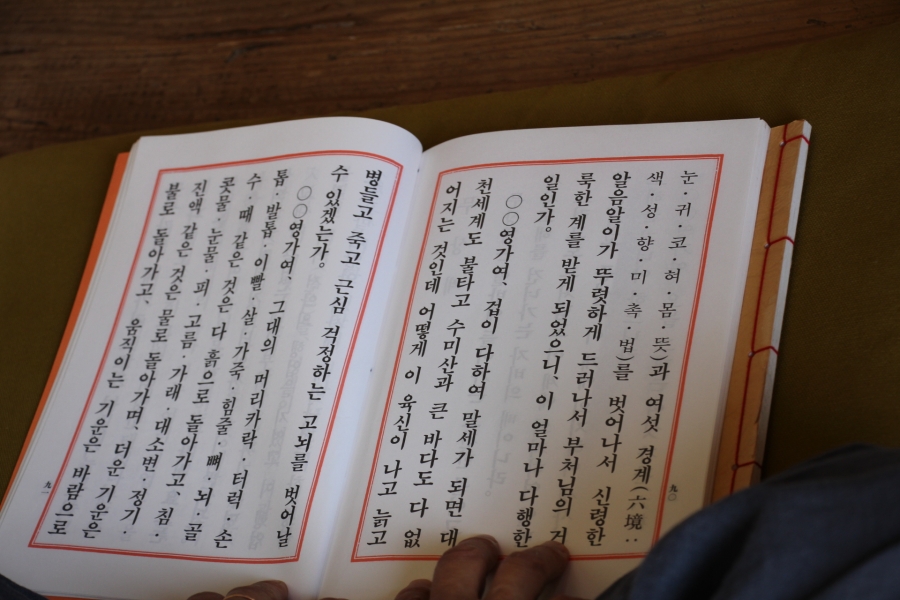 눈·귀·코·혀·몸·뜻)과 여섯 경계(六境:
색·성·향·미·촉·법)를 벗어나서 신령한
알음알이가 뚜렷하게 드러나서 부처님의 거
룩한 계를 받게 되었으니 이 얼마나 다행한
일인가.
○○영가여, 겁이 다하여 말세가 되면 대
천세계도 불타고 수미산과 큰 바다도 다 없
어지는 것인데 어떻게 이 육신이 나고 늙고
九○
병들고 죽고 근심 걱정하는 고뇌를 벗어날
수 있겠는가.
○○영가여, 그대의 머리카락·터럭·손
톱·발톱·이빨·살·가죽·힘줄·뼈·뇌·골
수·때 같은 것은 다 흙으로 돌아가고 침·
콧물·눈물·피·고름·가래·대소변·정기·
진액 같은 것은 물로 돌아가며, 더운 기운은
불로 돌아가고, 움직이는 기운은 바람으로
九一